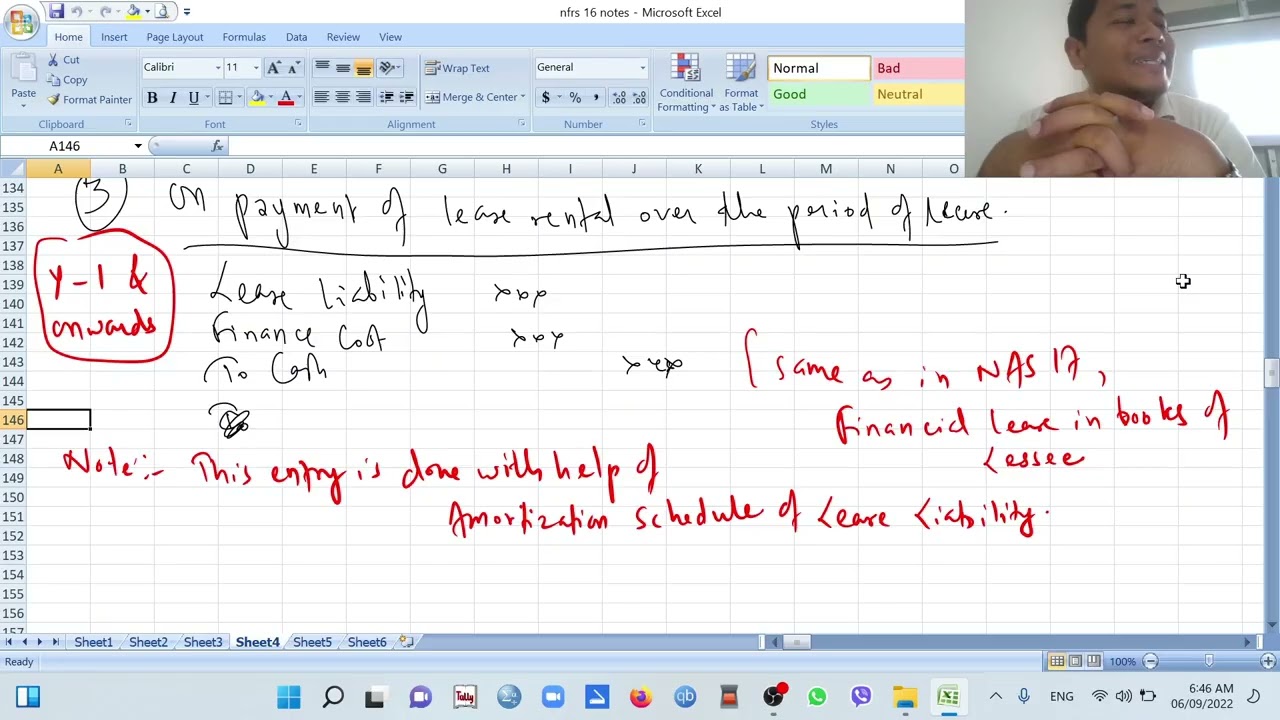 nfrs 16 notes - Microsoft Excel
Home Insert Page Layout Formulas Data Review View
Cut
Copy
Format Painter
Paste
Calibri 11
Wrap Text
Merge & Center
General
Conditional Formatting
Format as Table
Normal Bad
Good Neutral
Clipboard Font Alignment Number Styles
A146 fx
A B C D E F G H I J K L M N O
134
135
136
137
138
139
140
141
142
143
144
145
146
147
148
149
150
151
152
153
154
155
156
157
3 On payment of lease rental over the period of lease.
Y-1 &
onwards
Lease liability xxx
Finance Cost xxx
To Cash xxx
same as in NAS 17,
Financial lease in books of
Lessee
Note:- This entry is done with help of
Amortization schedule of Lease Liability.
Sheet1 Sheet2 Sheet3 Sheet4 Sheet5 Sheet6
Ready 100%
Tally qb
ENG 6:46 AM
06/09/2022